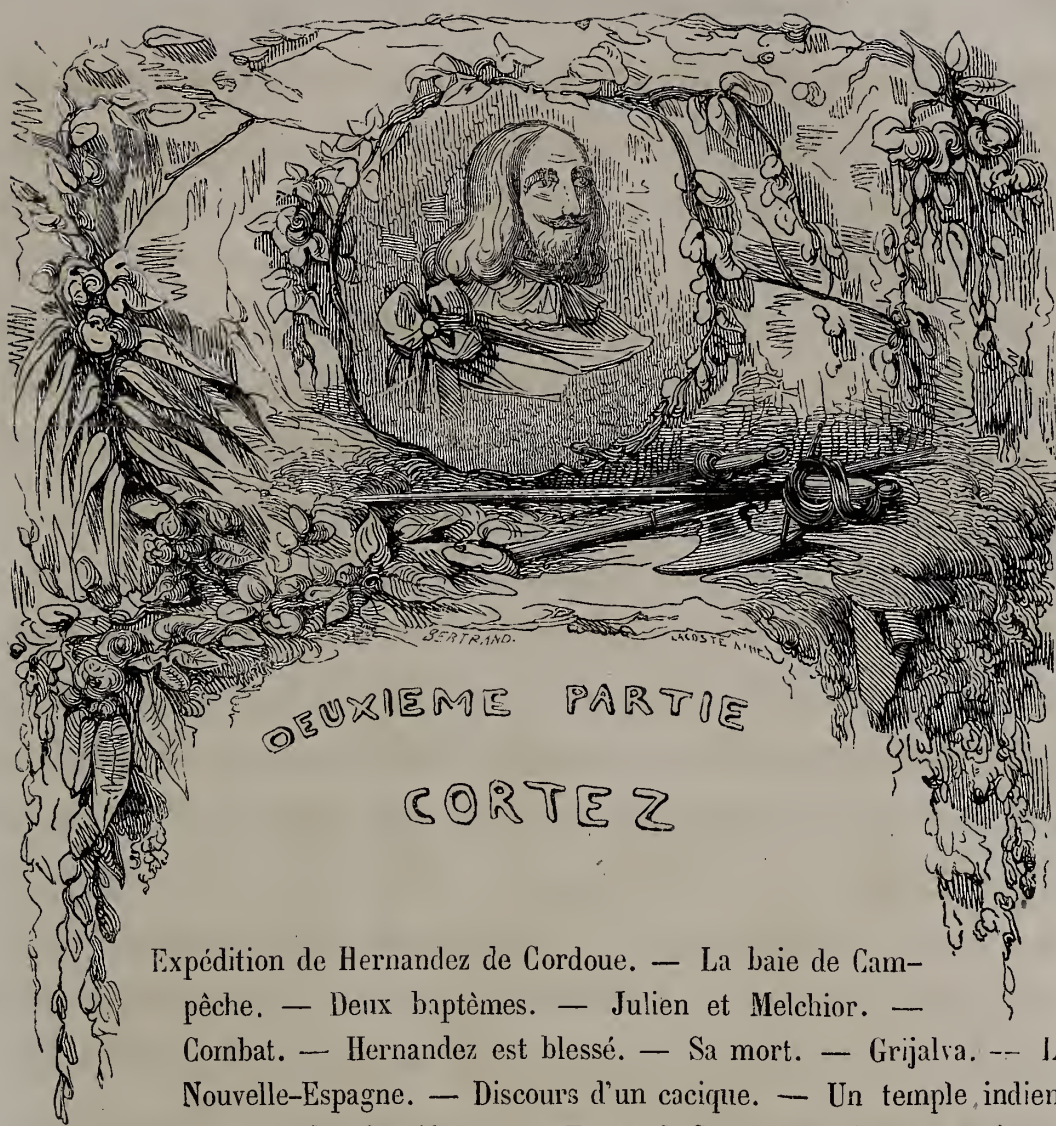 BERTRAND.
LACOSTE
DEUXIEME PARTIE
CORTEZ
Expédition de Hernandez de Cordoue. — La baie de Cam-
pêche. — Deux baptêmes. — Julien et Melchior. —
Combat. — Hernandez est blessé. — Sa mort. — Grijalva. —
Nouvelle-Espagne. — Discours d'un cacique. — Un temple indien